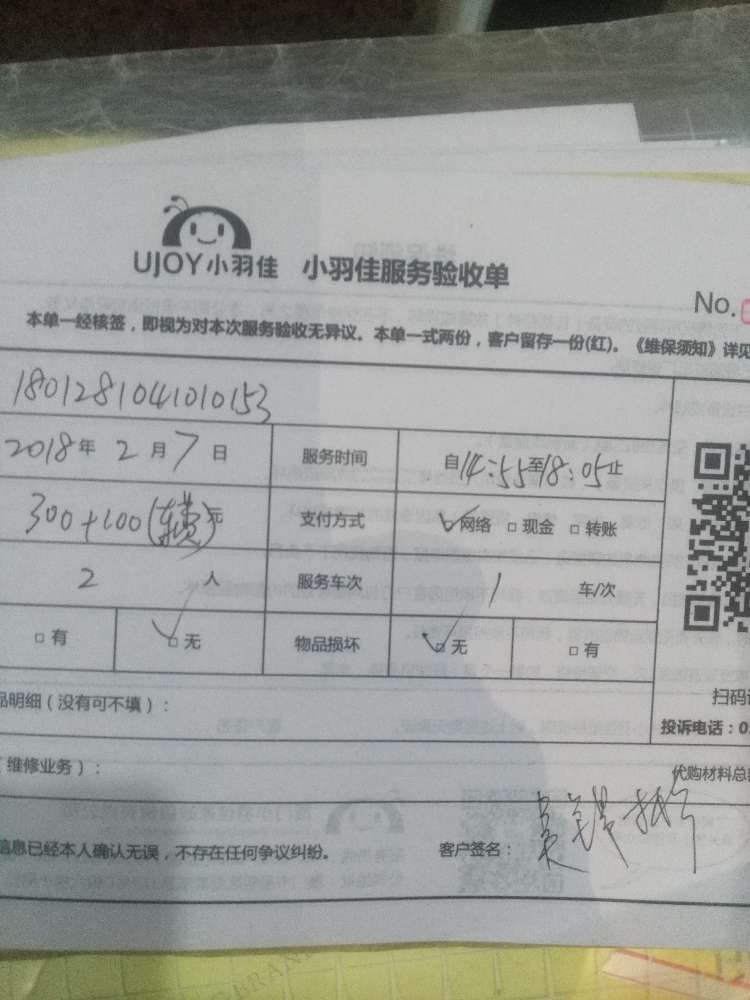 UJOY小羽佳 小羽佳服务验收单
No.
本单一经核签，即视为对本次服务验收无异议。本单一式两份，客户留存一份(红)。《维保须知》详见
1801281041010153
2018年2月7日 服务时间 自14:55至18:05止
300+100( 费)元 支付方式 ☑网络 □现金 □转账
2人 服务车次 1车/次
□有 ☑无 物品损坏 ☑无 □有
品明细（没有可不填）：
扫码
投诉电话：0
（维修业务）：
代购材料总
信息已经本人确认无误，不存在任何争议纠纷。 客户签名：